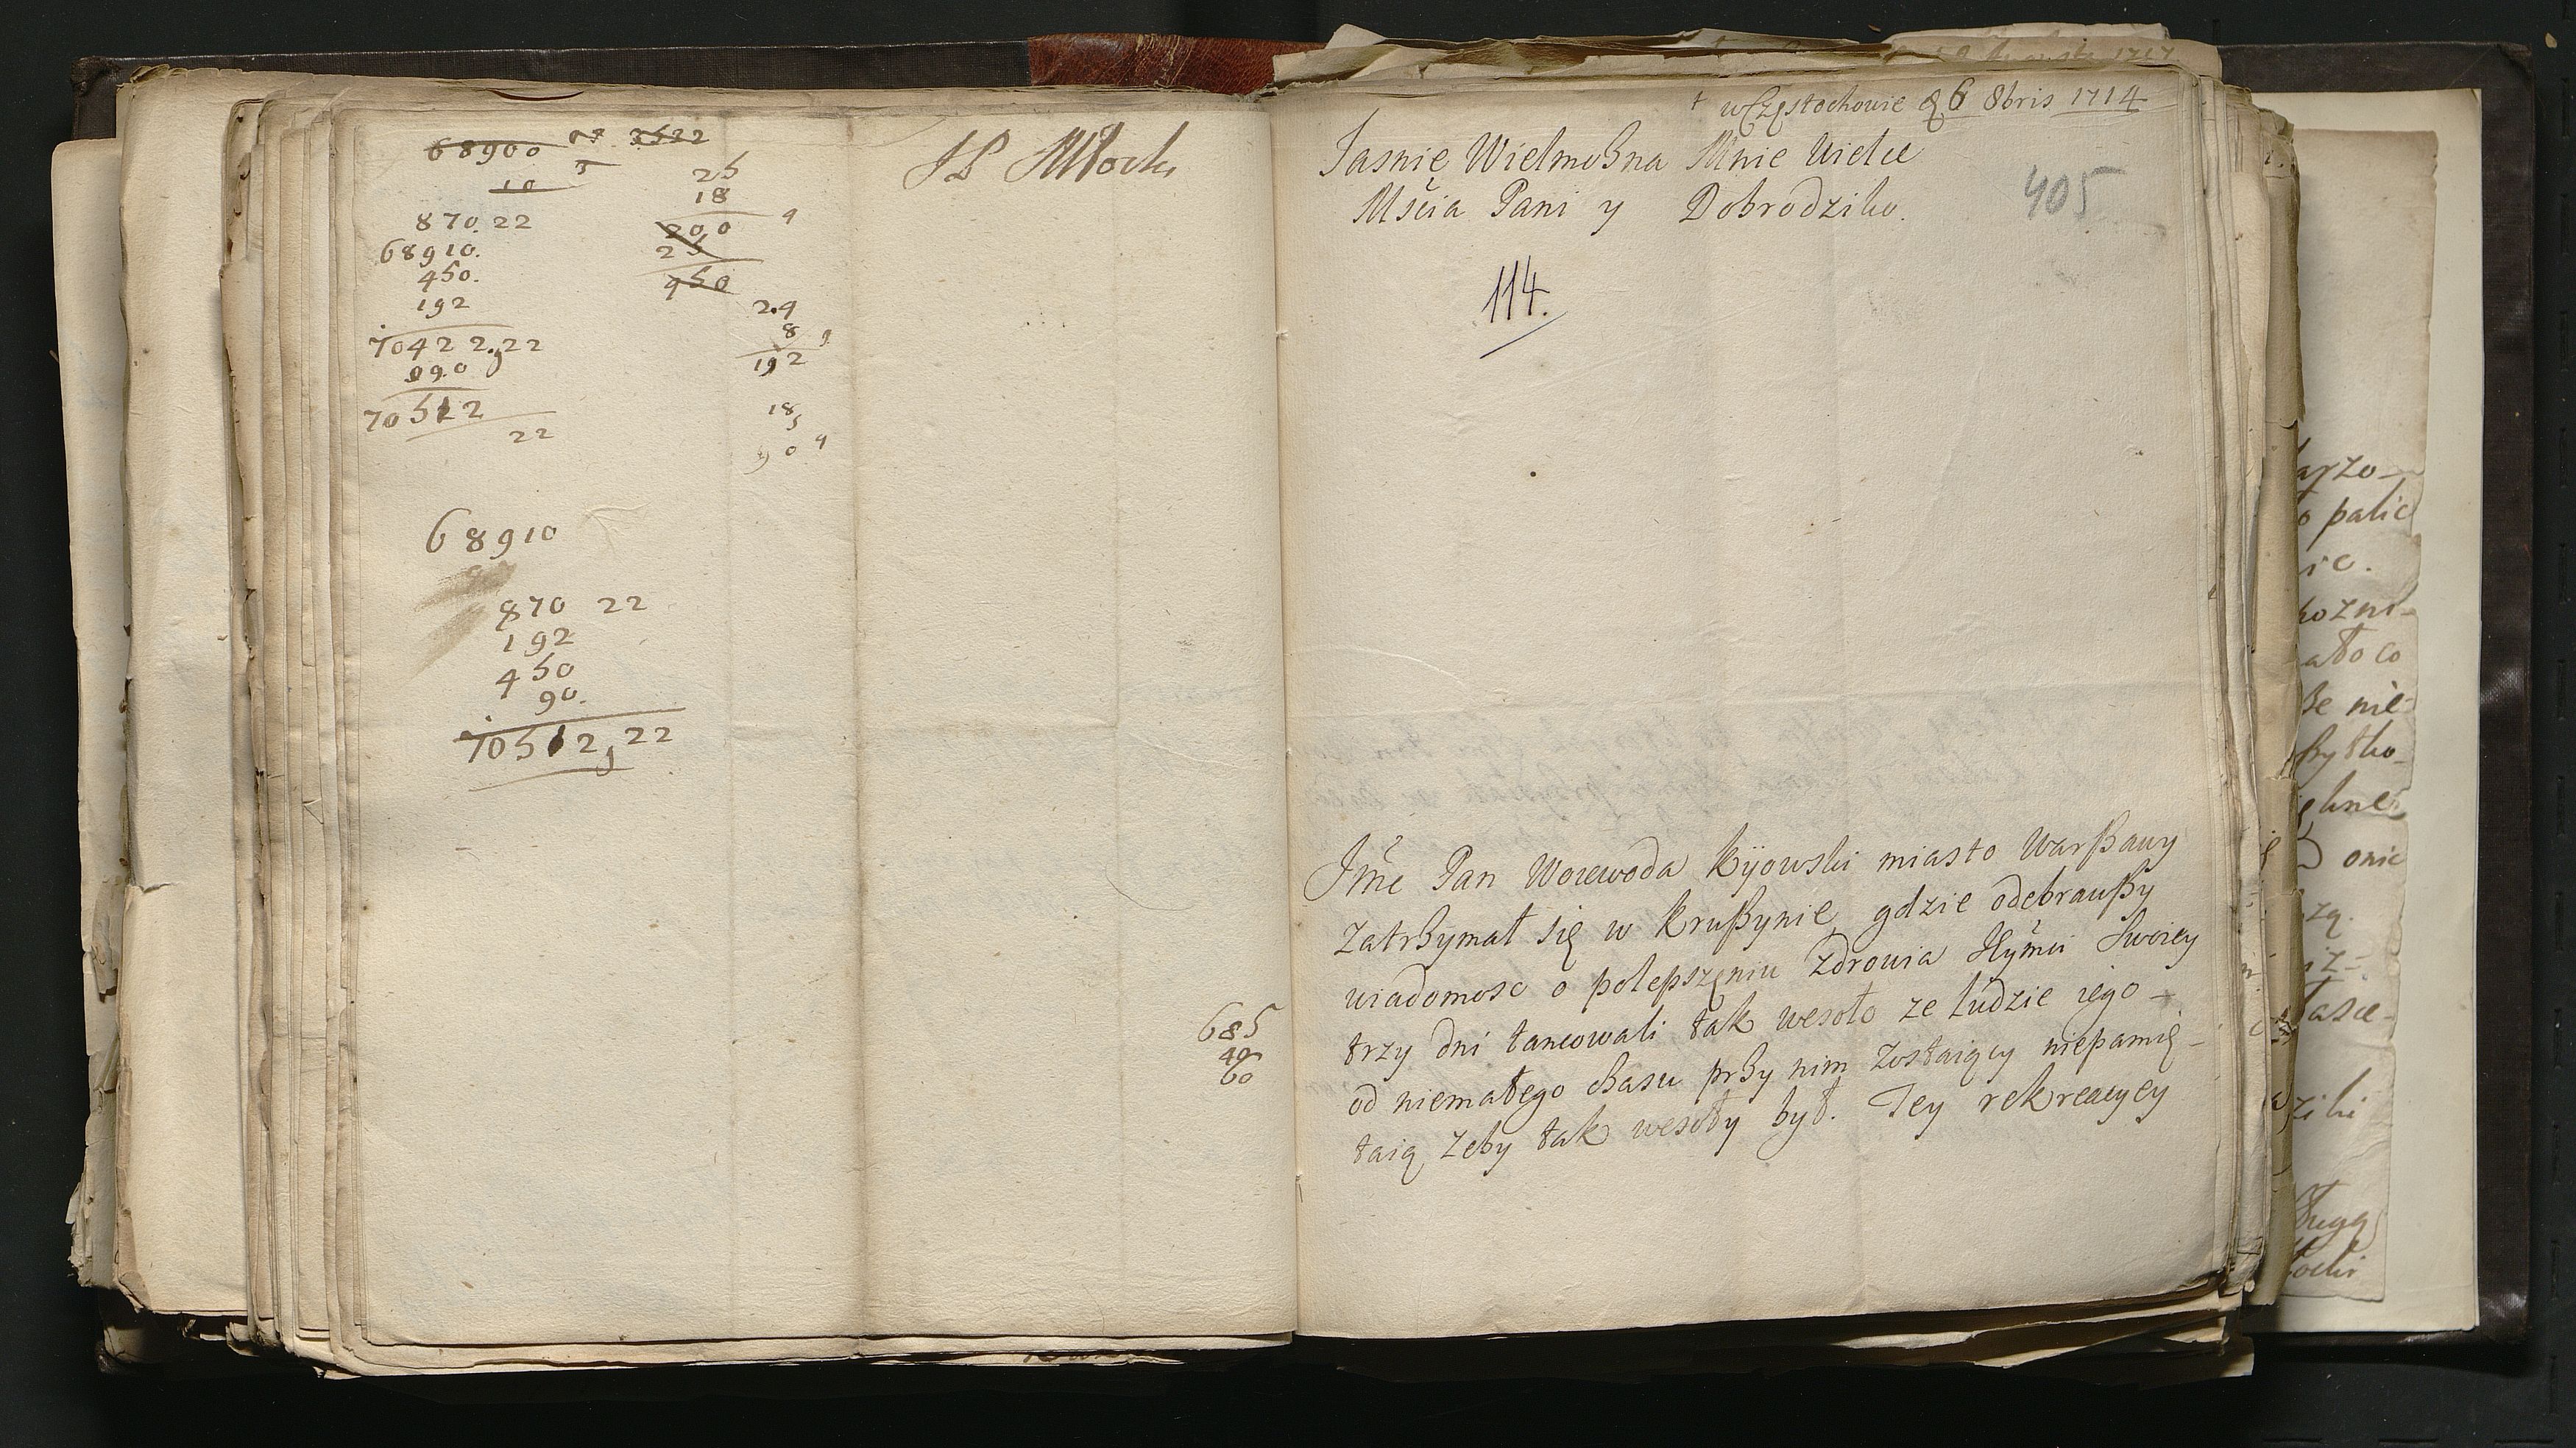 68900
3522
10
870.22
68910.
450.
192
70422.22
090
70512
22
25
18
200
25
450
24
8
192
18
5
90
68910
870 22
192
450
90.
70512,22
JP Młock
685
40
60
w Częstochowie d 6 8bris 1714
Jasnie Wielmoßna Mnie Wielce
Mścia Pani y Dobrodziko.
405
114.
Jmć Pan Woiewoda Kijowski miasto Warßawy
Zatrßymał się w Krußynie, gdzie odebrawßy
wiadomosc o polepszęniu Zdrowia Swoiey
trzy dni tancowali, tak wesoło ze ludzie iego –
od niemałego cßasu prßy nim Zostaiący niepamię-
taią Zeby tak wesoły był. Tey rekreacyey
arzo-
o palic
ic.
kozni-
ało co
ße nie-
ßytko-
onie
zą.
łasce-
ziki